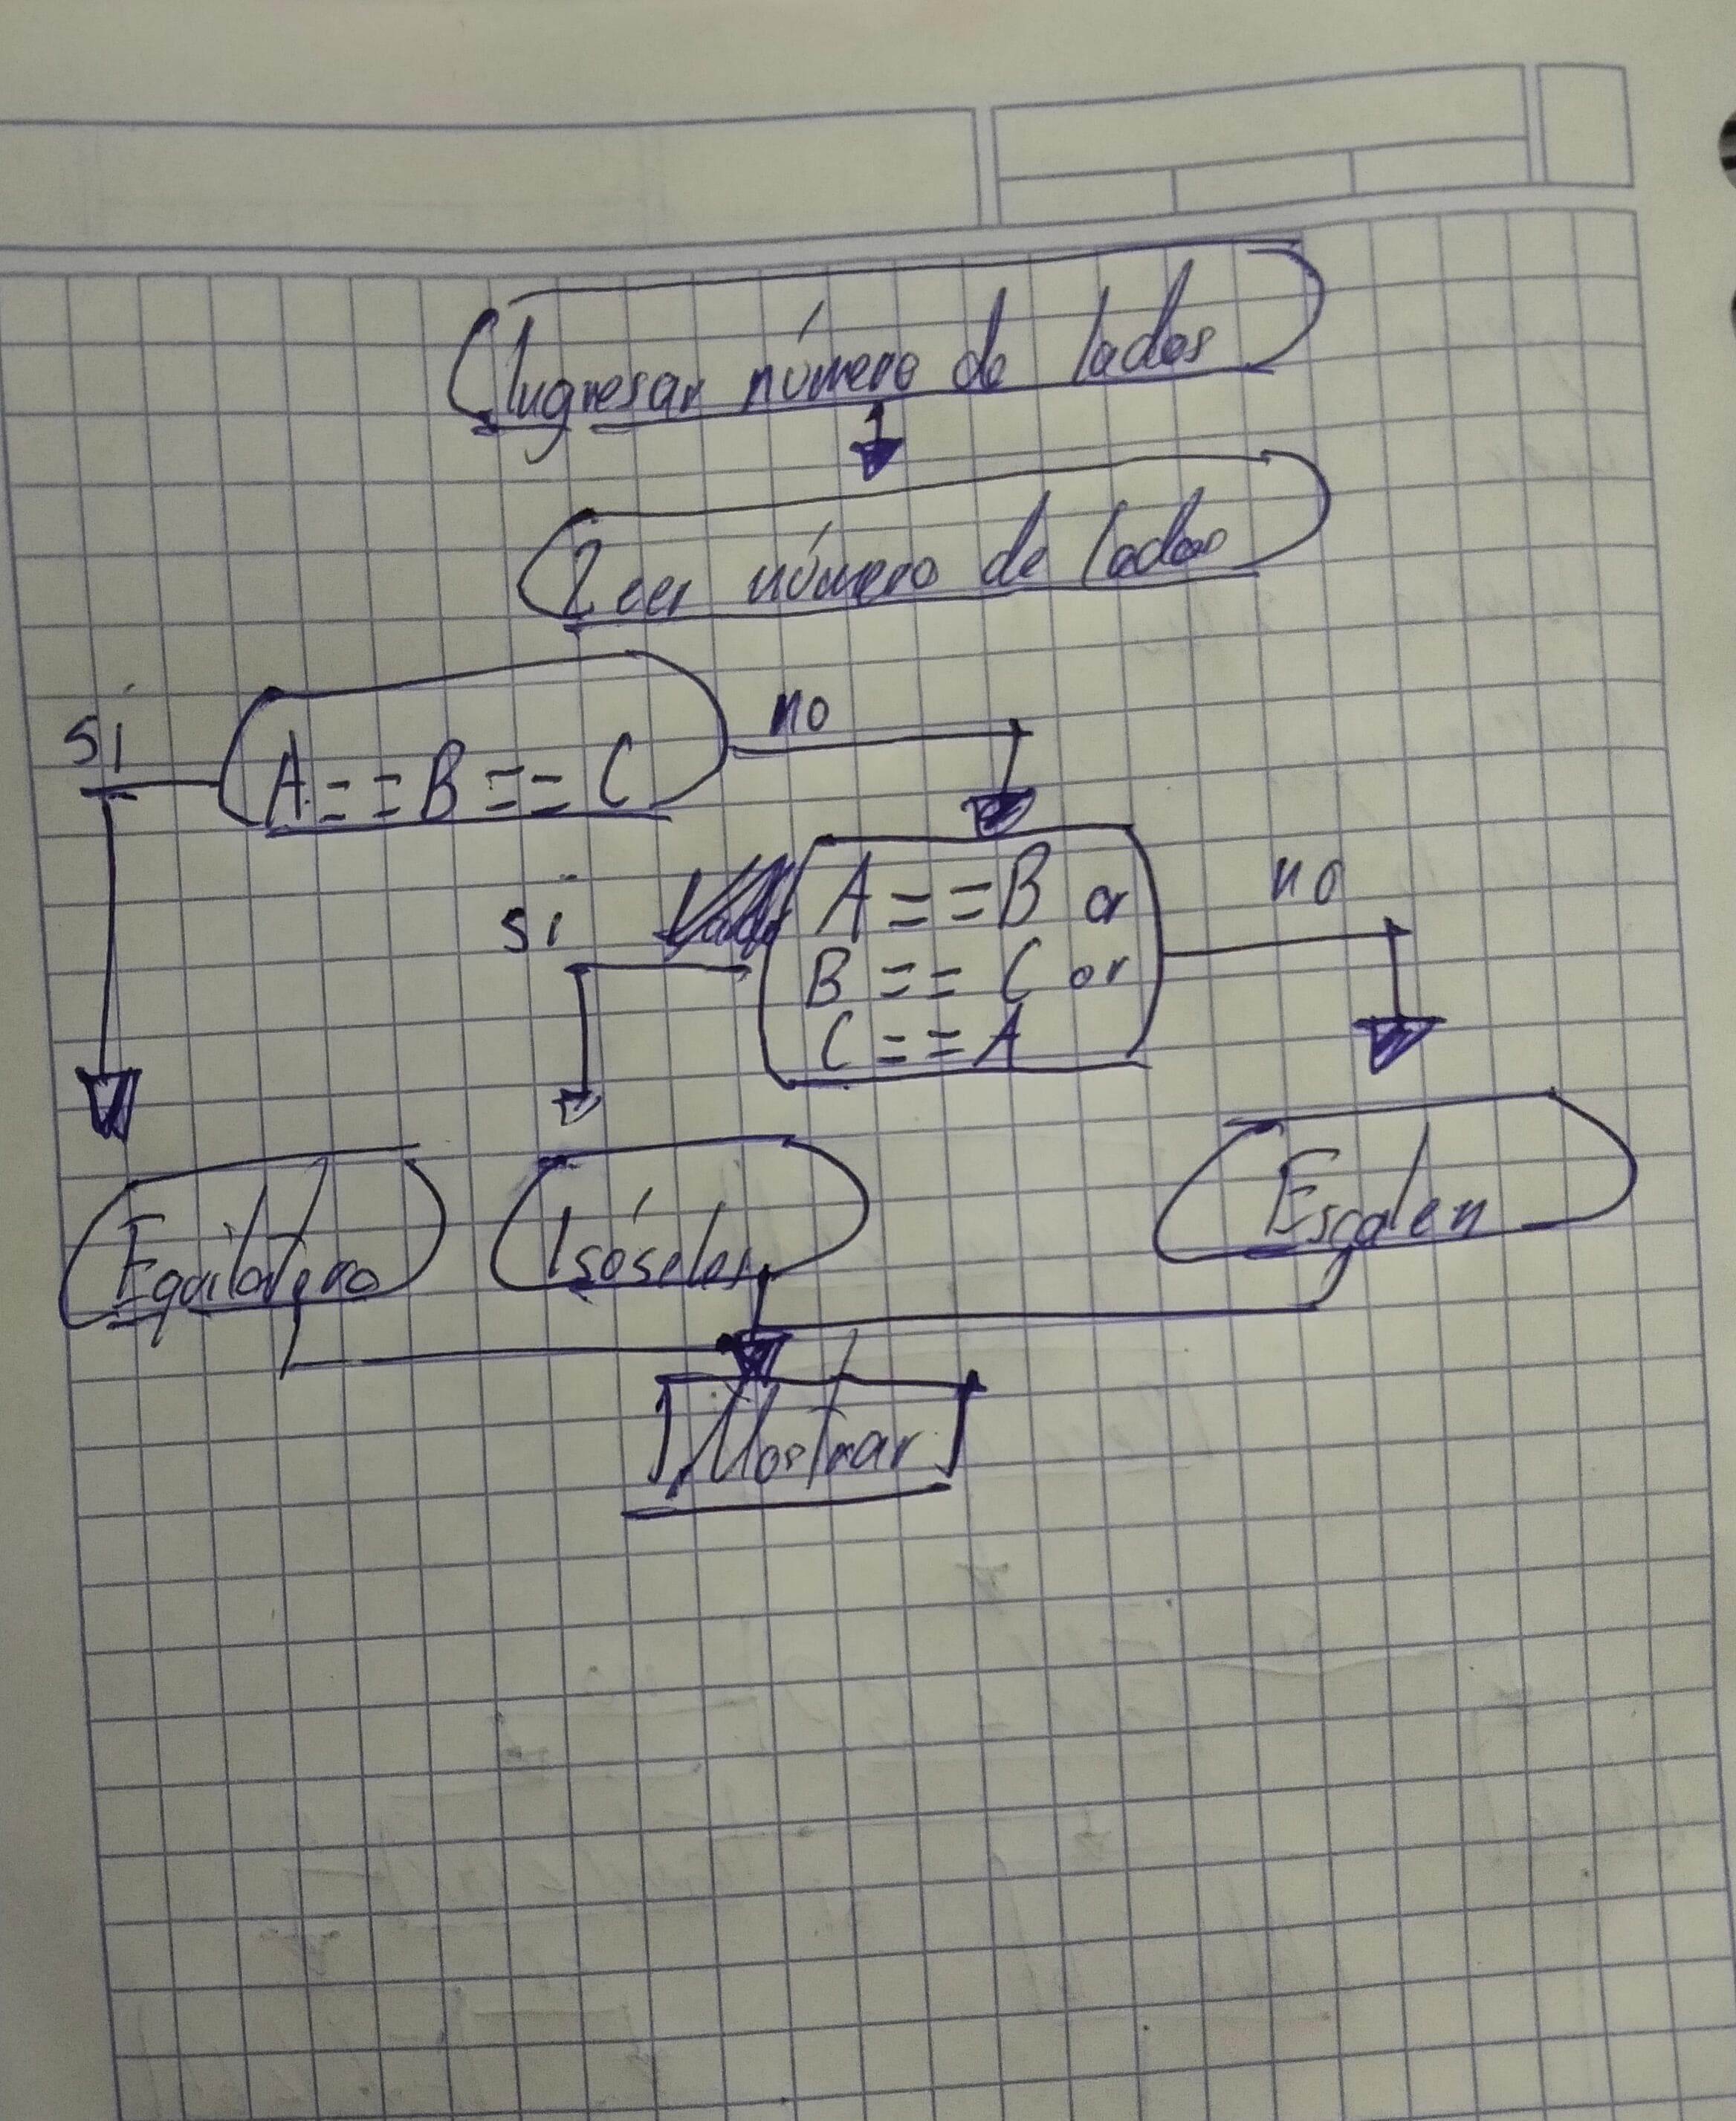 Ingresar número de lados
Leer número de lados
sí
A == B == C
no
sí
A == B or
B == C or
C == A
no
Equilatero
Isóseles
Escalen
Mostrar